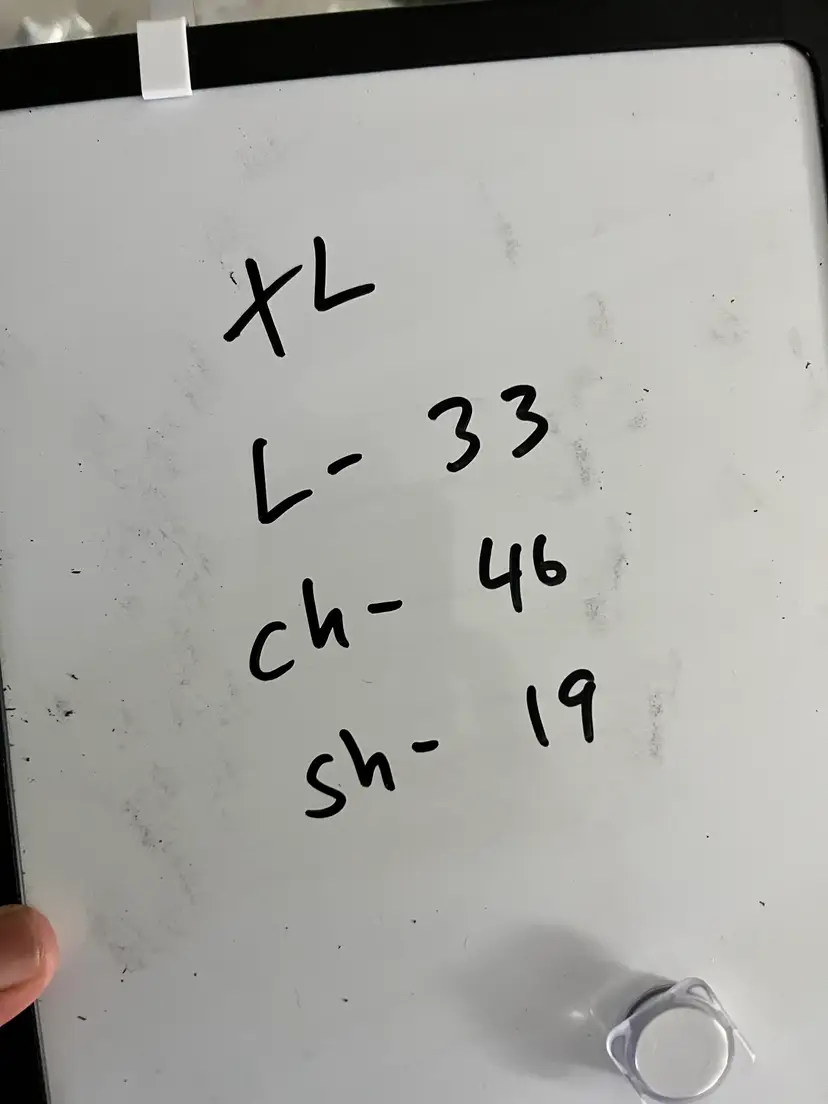 XL
L- 33
ch- 46
sh- 19